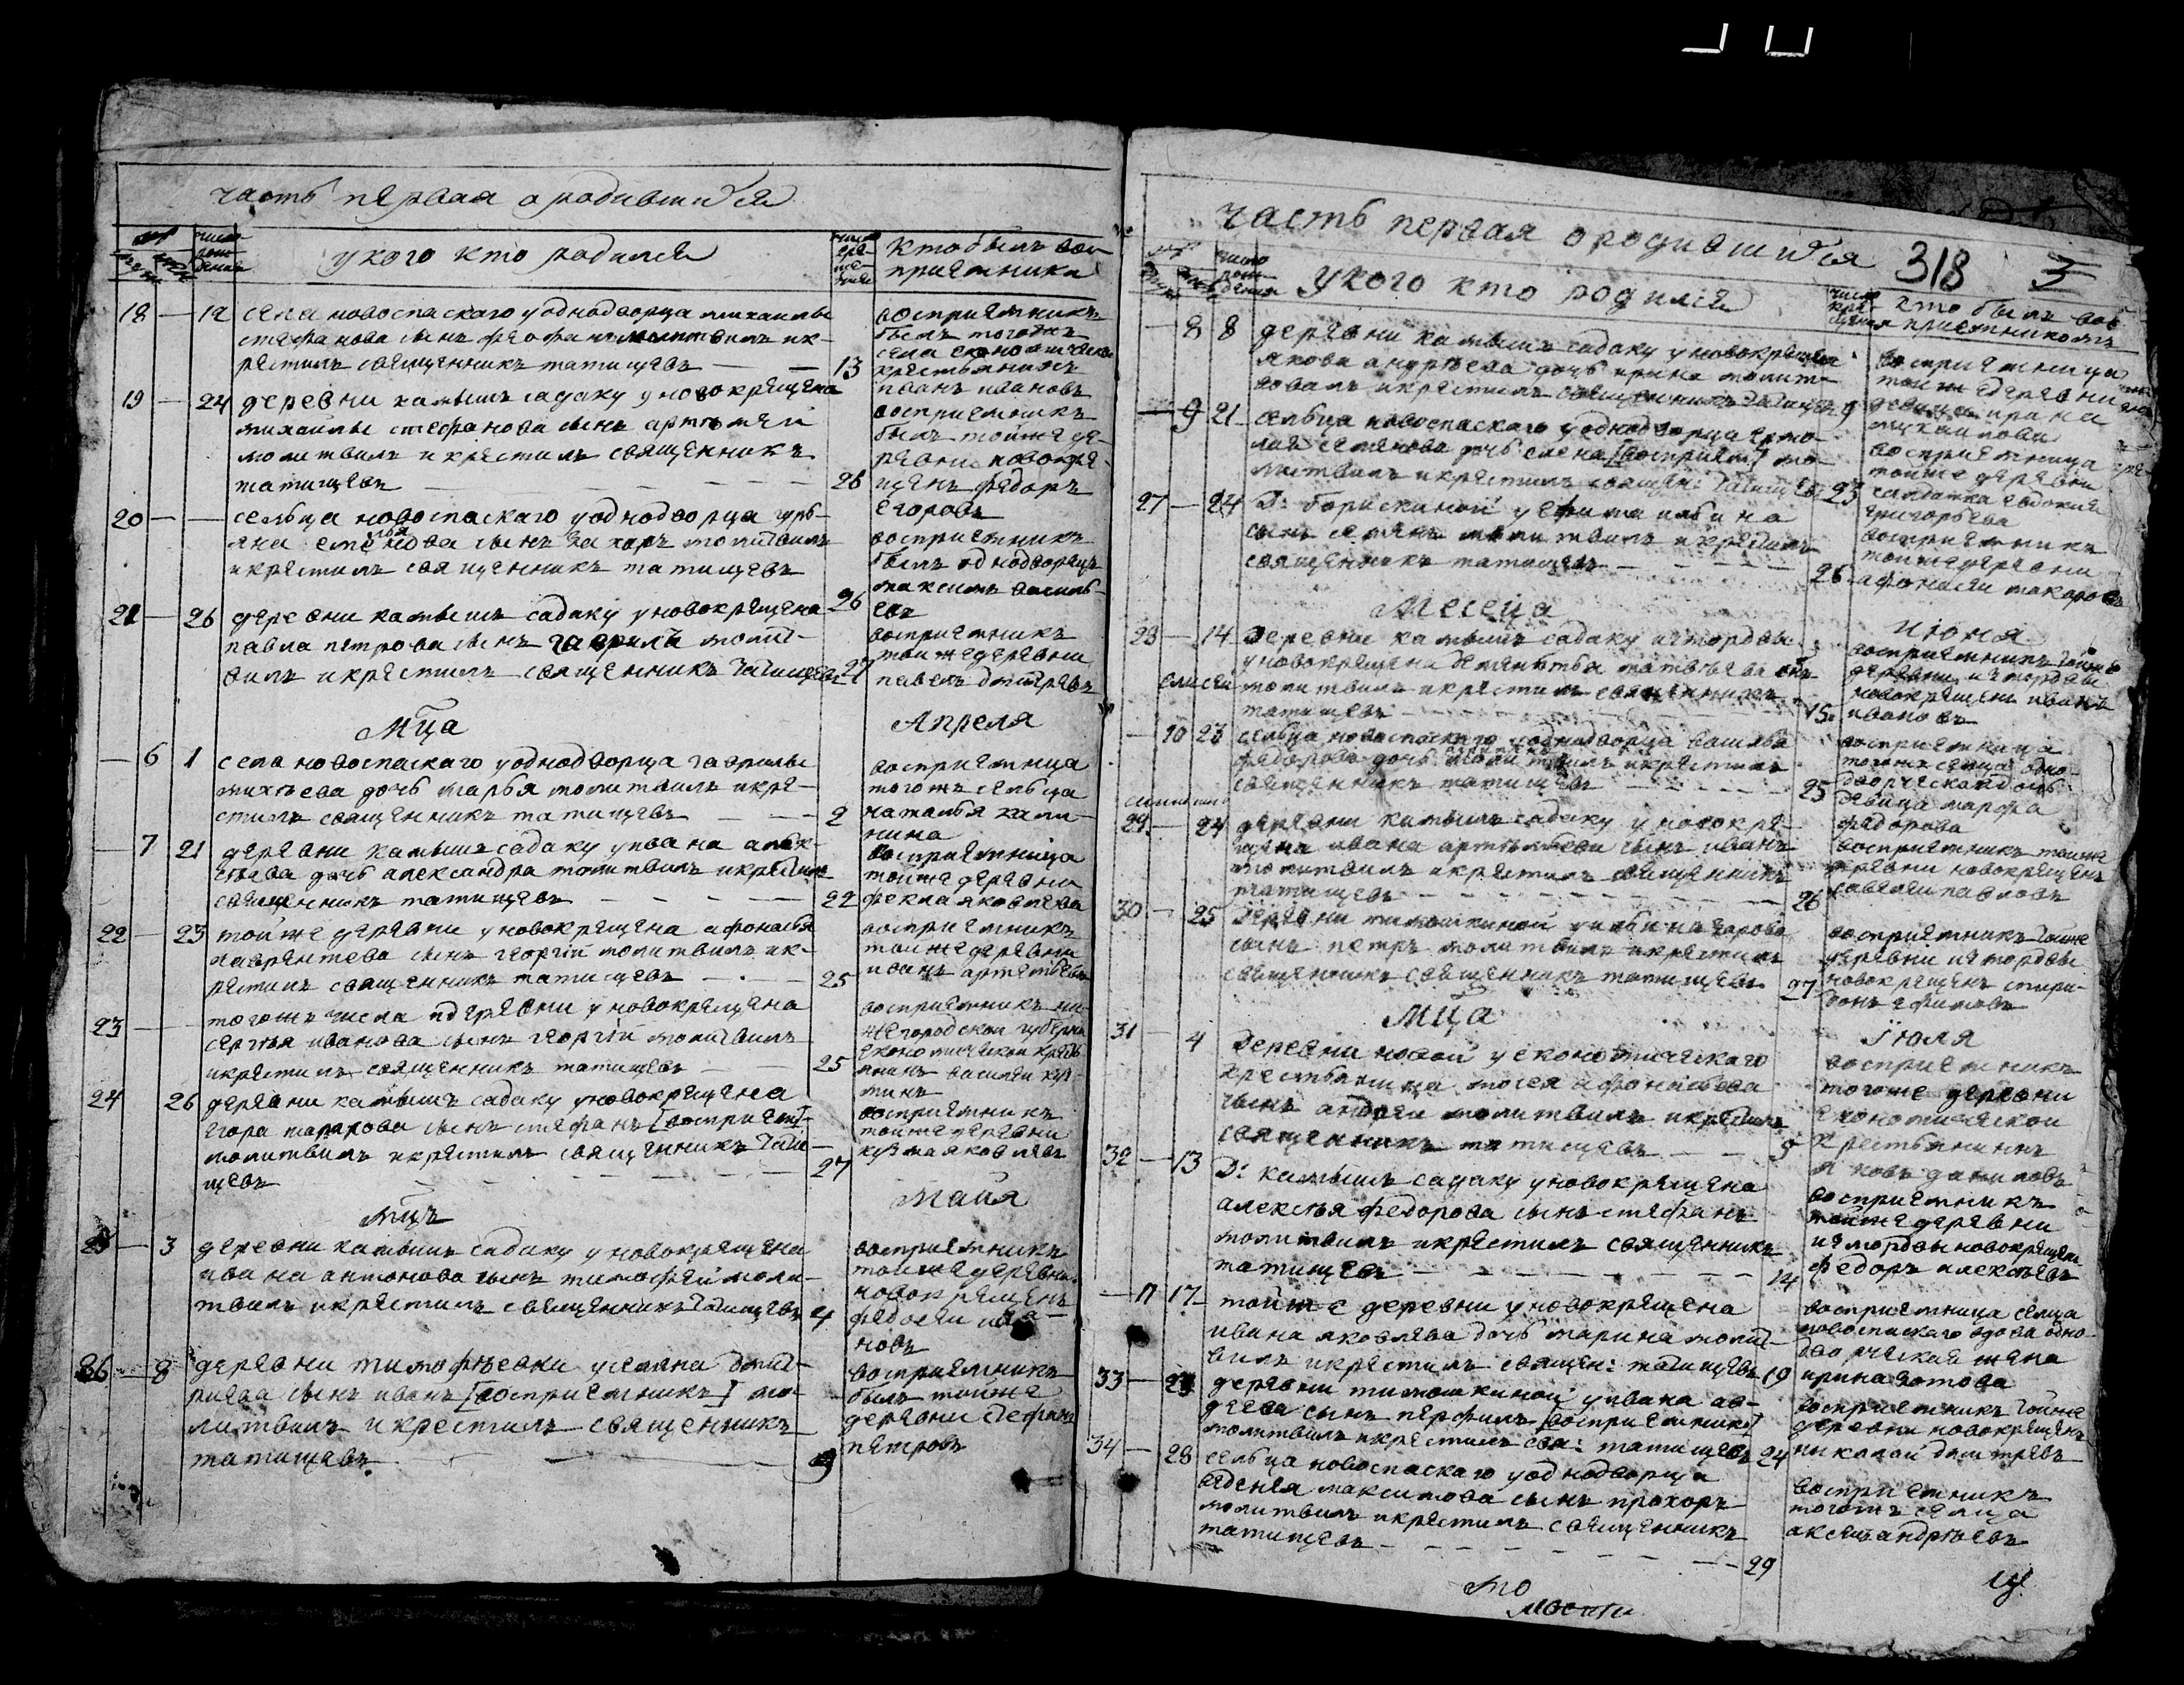 часть первая о родившихся
число рождения
у кого кто родился
число крещения
кто был восприемника
18 — 12 села новоспаскаго у однодворца михаилы
стефанова сынъ феофанъ молитвилъ и к-
рестилъ священникъ татищевъ — — 13
восприемникъ
былъ тогожъ
села
крестьянинъ
иванъ ивановъ
19 — 24 деревни камышъ садаку у новокрещена
михаилы стефанова сынъ артемей
молитвилъ и крестилъ священникъ
татищевъ — — — — 26
восприемникъ
былъ тойже де-
ревни новокре-
щенъ федоръ
егоровъ
20 — — сельца новоспаскаго у однодворца
сынъ захаръ молитвилъ
и крестилъ священникъ татищевъ
26
восприемникъ
былъ однодворецъ
максимъ василь-
евъ
21 — 26 деревни камышъ садаку у новокрещена
павла петрова сынъ гаврила молит-
вилъ и крестилъ священникъ татищевъ 27
восприемникъ
тойже деревни
павелъ дмитревъ
мца Апреля
— 6 1 села новоспаскаго у однодворца гаврилы
михеева дочь марья молитвилъ и кре-
стилъ священникъ татищевъ — — 2
восприемница
тогожъ сельца
наталья кали-
нина
— 7 21 деревни камышъ садаку у ивана алек-
сеева дочь александра молитвилъ и крестилъ
священникъ татищевъ — — — 22
восприемница
тойже деревни
фекла яковлева
22 — 23 тойже деревни у новокрещена афонасья
лаврентева сынъ георгий молитвилъ и к-
рестилъ священникъ татищевъ — . — 25
восприемникъ
тойже деревни
иванъ артемьевъ
23 — — тогожъ числа и деревни у новокрещена
сергея иванова сынъ георгий молитвилъ
и крестилъ священникъ татищевъ — — 25
восприемникъ ни-
жегородской губерни
економической кресть-
янинъ василей куз-
минъ
24 26 деревни камышъ садаку у новокрещена
егора макарова сынъ стефанъ [восприем]
молитвилъ и крестилъ священникъ тати-
щевъ — — — — 27
восприемникъ
тойже деревни
кузма яковлевъ
мцъ майя
25 — 3 деревни камышъ садаку у новокрещена
ивана антонова сынъ тимофей моли-
твилъ и крестилъ священникъ татищевъ 4
восприемникъ
тойже деревни
новокрещенъ
федосей ива-
новъ
26 — 8 деревни тимофеевки у семена дмит-
риева сынъ иванъ [восприемникъ] мо-
литвилъ и крестилъ священникъ
татищевъ. — — — 9
восприемникъ
былъ тойже
деревни
петровъ
часть первая о родившихся
318 3
число рождения
у кого кто родился
число крещения
кто былъ восприемникомъ
— 8 8 деревни камышъ садаку у новокрещена
якова андреева дочь ирина молит-
вовалъ и крестилъ священникъ татищевъ 9
восприемница
тойже деревни
девица ирина
михайлова
— 9 21 сельца новоспаскаго у однодворца ермо-
лая семенова дочь елена [восприем] мо-
литвилъ и крестилъ священ: татищевъ 23
восприемница
тойже деревни
салдатка евдокия
григорьева
27 — 24 д: борискиной у ефима ильина
сынъ семенъ молитвилъ и крестилъ
священникъ татищевъ — — — — 26
восприемникъ
тойже деревни
афонасеи макаровъ
Месеца июня
28 — 14 деревни камышъ садаку из мордвы
у новокрещена матвеева сынъ
елисей молитвилъ и крестилъ священникъ
татищевъ — — — — 15
восприемникъ тойже
деревни из мордвы
новокрещенъ иванъ
ивановъ
— 10 23 сельца новоспаскаго у однодворца василья
федорова дочь молитвилъ и крестилъ
священникъ татищевъ — — — 25
восприемница
тогожъ сельца одно-
дворческая дочь
девица марфа
федорова
29 — 24 деревни камышъ садаку у новокре-
щена ивана артемьева сынъ иванъ
молитвилъ и крестилъ священникъ
татищевъ — — — — 26
восприемникъ тойже
деревни новокрещенъ
савелеи павловъ
30 — 25 деревни тимошкиной у ильи назарова
сынъ петръ молитвилъ и крестилъ
священникъ священникъ татищевъ 27
восприемникъ тойже
деревни из мордвы
новокрещенъ спири-
донъ ефимовъ
мца Июля
31 — 4 деревни новой у економическаго
крестьянина мосея афонасьева
сынъ андреи молитвилъ и крестилъ
священникъ татищевъ — — 5
восприемникъ
тогоже деревни
економической
крестьянинъ
яковъ даниловъ
32 — 13 д: камышъ садаку у новокрещена
алексея федорова сынъ стефанъ
молитвилъ и крестилъ священникъ
татищевъ — — — — 14
восприемникъ
тойже деревни
из мордвы новокрещенъ
федоръ алексеевъ
— 11 17 тойже деревни у новокрещена
ивана яковлева дочь марина молит-
вилъ и крестилъ священ: татищевъ 19
восприемница селца
новоспаскаго вдова одно-
дворческая жена
ирина зотова
33 — 23 деревни тимошкиной у ивана ав-
деева сынъ перфилъ [восприемник]
молитвилъ и крестилъ свя: татищевъ 24
восприемникъ тойже
деревни новокрещенъ
николай дмитревъ
34 — 28 сельца новоспаскаго у однодворца
евдения максимова сынъ прохоръ
молитвилъ и крестилъ священникъ
татищевъ — — — — 29
восприемникъ
тогожъ селца
аксенъ андреевъ